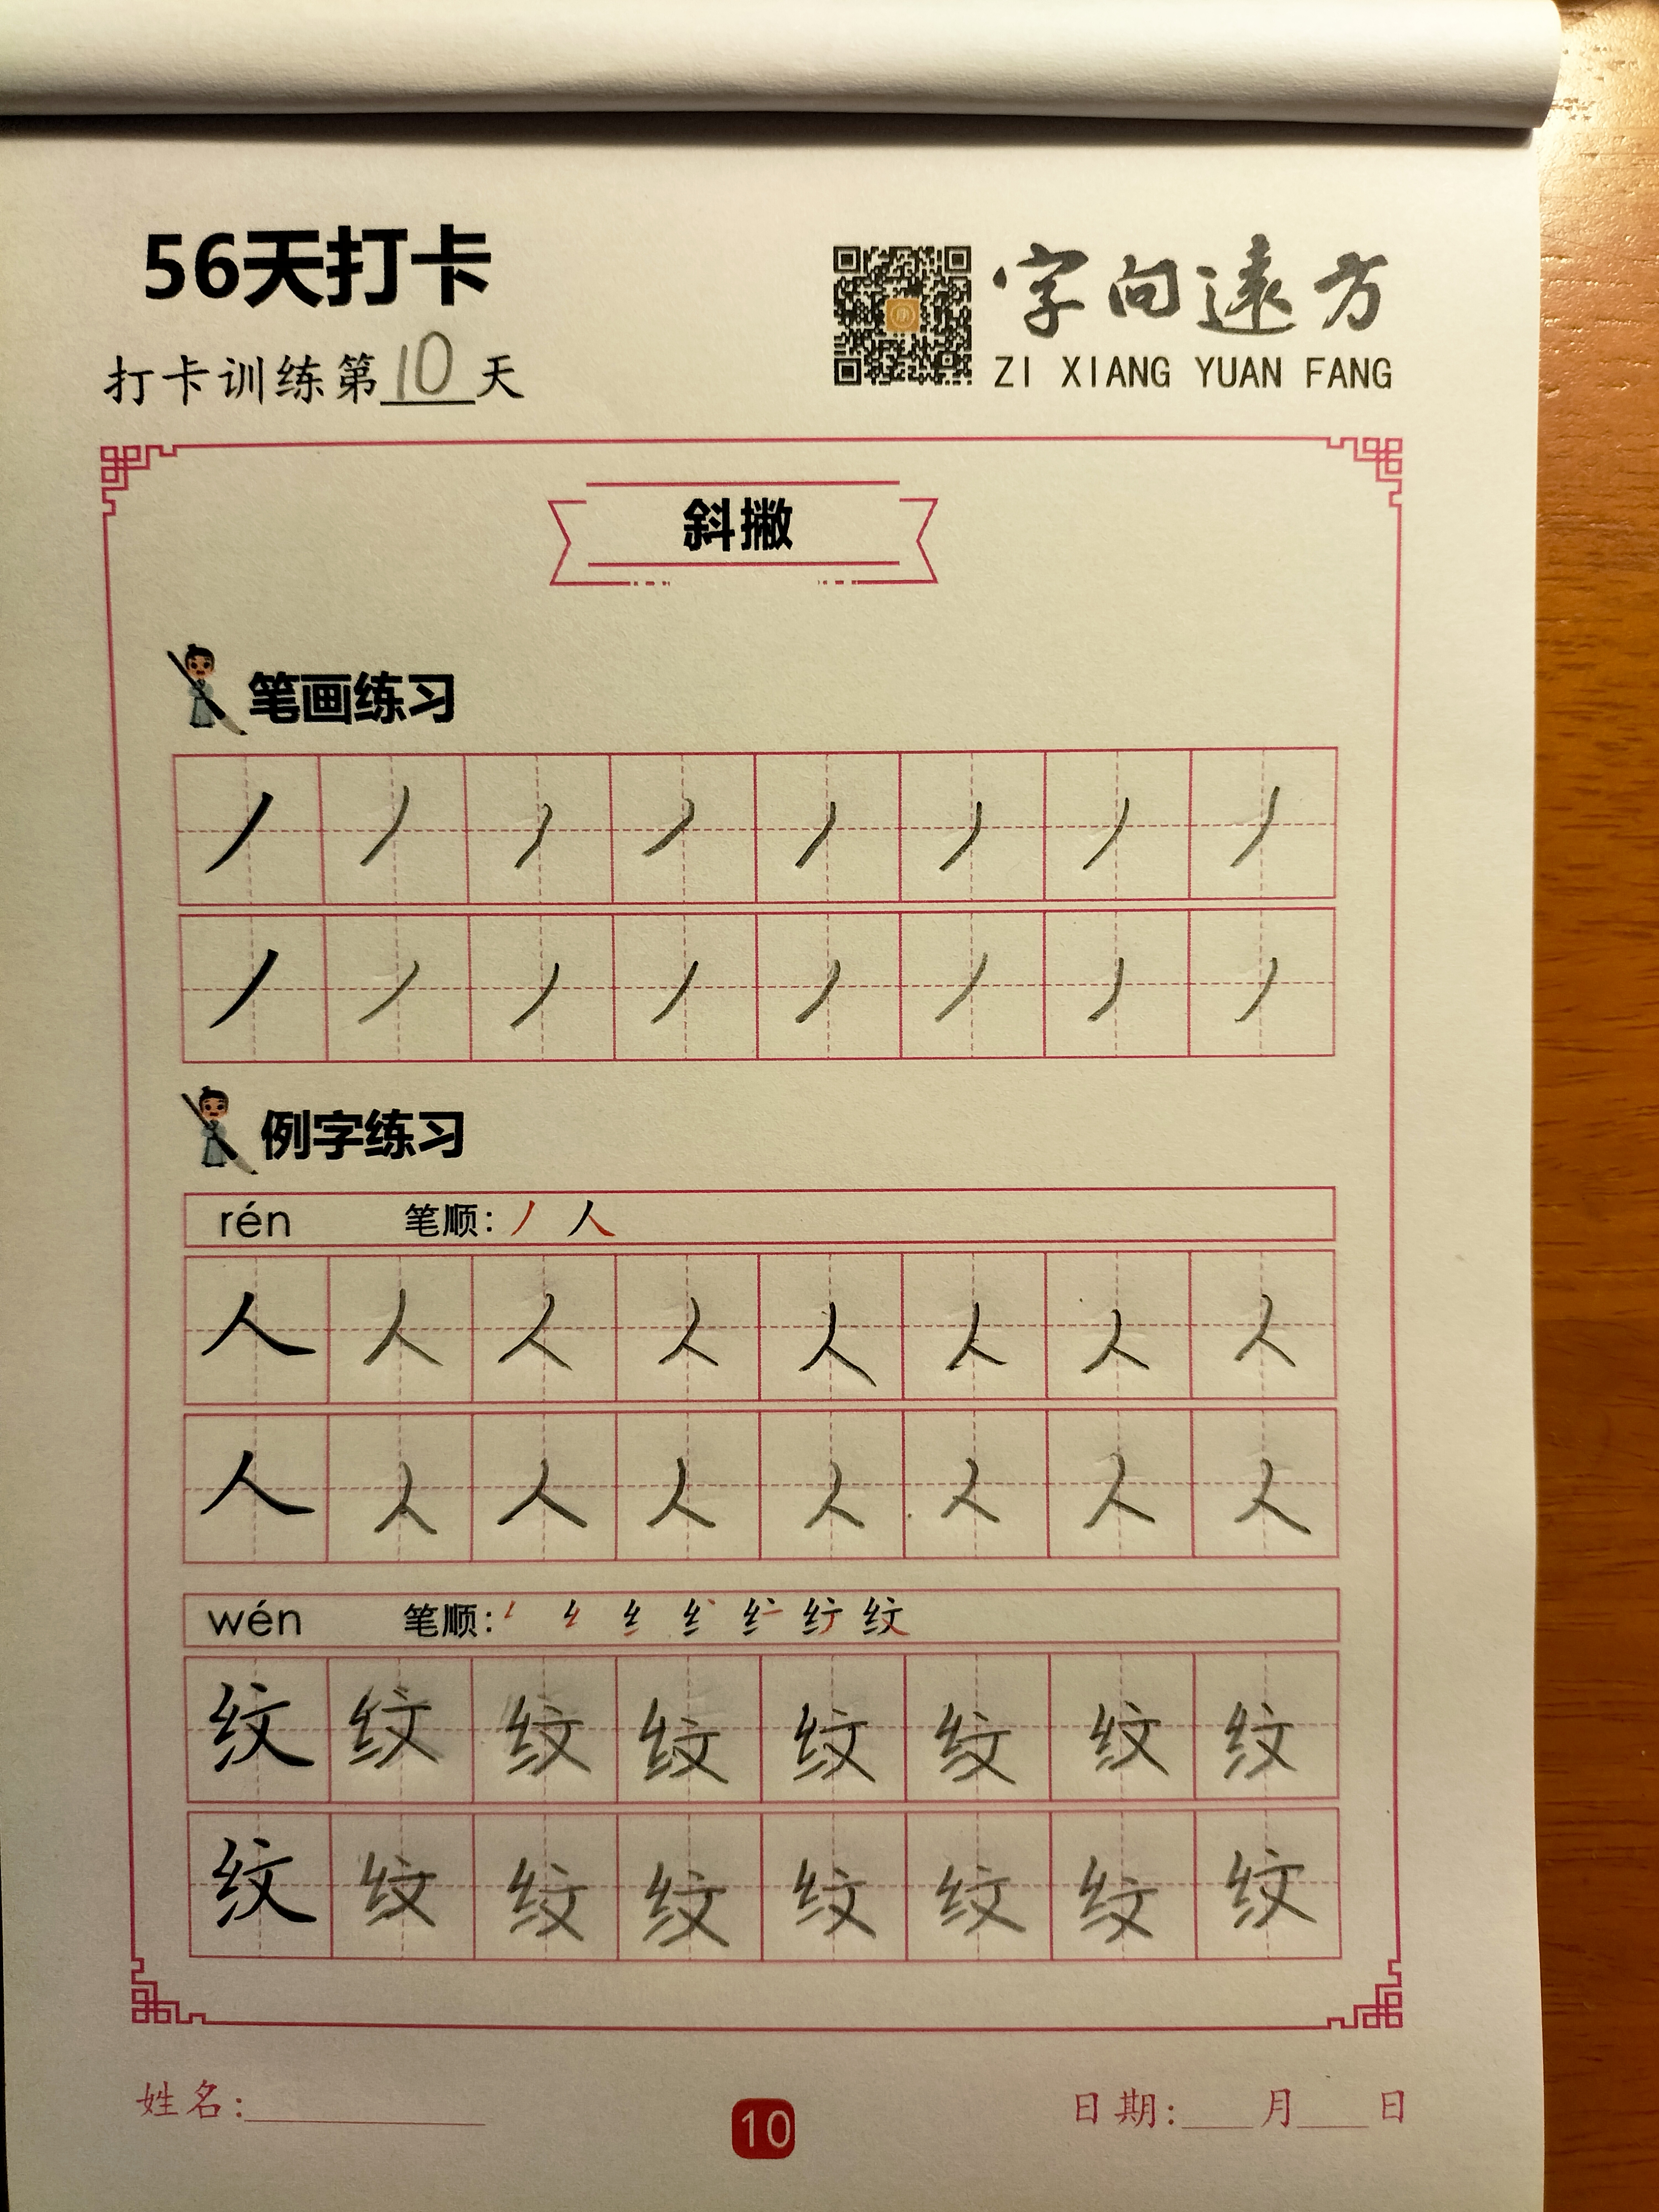 56天打卡
字向遠方
打卡训练第10天
ZI XIANG YUAN FANG
斜撇
笔画练习
丿 丿 丿 丿 丿 丿 丿 丿
丿 丿 丿 丿 丿 丿 丿 丿
例字练习
rén 笔顺: 丿 人
人 人 人 人 人 人 人 人
人 人 人 人 人 人 人 人
wén 笔顺: 纹
纹 纹 纹 纹 纹 纹 纹 纹
纹 纹 纹 纹 纹 纹 纹 纹
姓名:
10
日期: 月 日